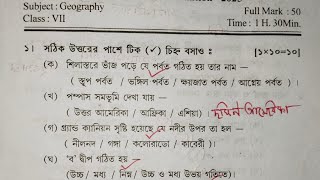 Subject : Geography
Full Mark : 50
Class : VII
Time : 1 H. 30Min.
১। সঠিক উত্তরের পাশে টিক (✓) চিহ্ন বসাও : [১×১০=১০]
(ক) শিলাস্তরে ভাঁজ পড়ে যে পর্বত গঠিত হয় তার নাম –
( স্তূপ পর্বত / ভঙ্গিল পর্বত / ক্ষয়জাত পর্বত / আগ্নেয় পর্বত )।
(খ) পম্পাস সমভূমি দেখা যায় –
( উত্তর আমেরিকা / আফ্রিকা / এশিয়া )। দক্ষিণ আমেরিকা
(গ) গ্র্যান্ড ক্যানিয়ন সৃষ্টি হয়েছে যে নদীর উপর তা হল –
( নীলনদ / গঙ্গা / কলোরাডো / কাবেরী )।
(ঘ) 'ব' দ্বীপ গঠিত হয় –
(উচ্চ / মধ্য / নিম্ন / উচ্চ ও মধ্য উভয় গতিতে)